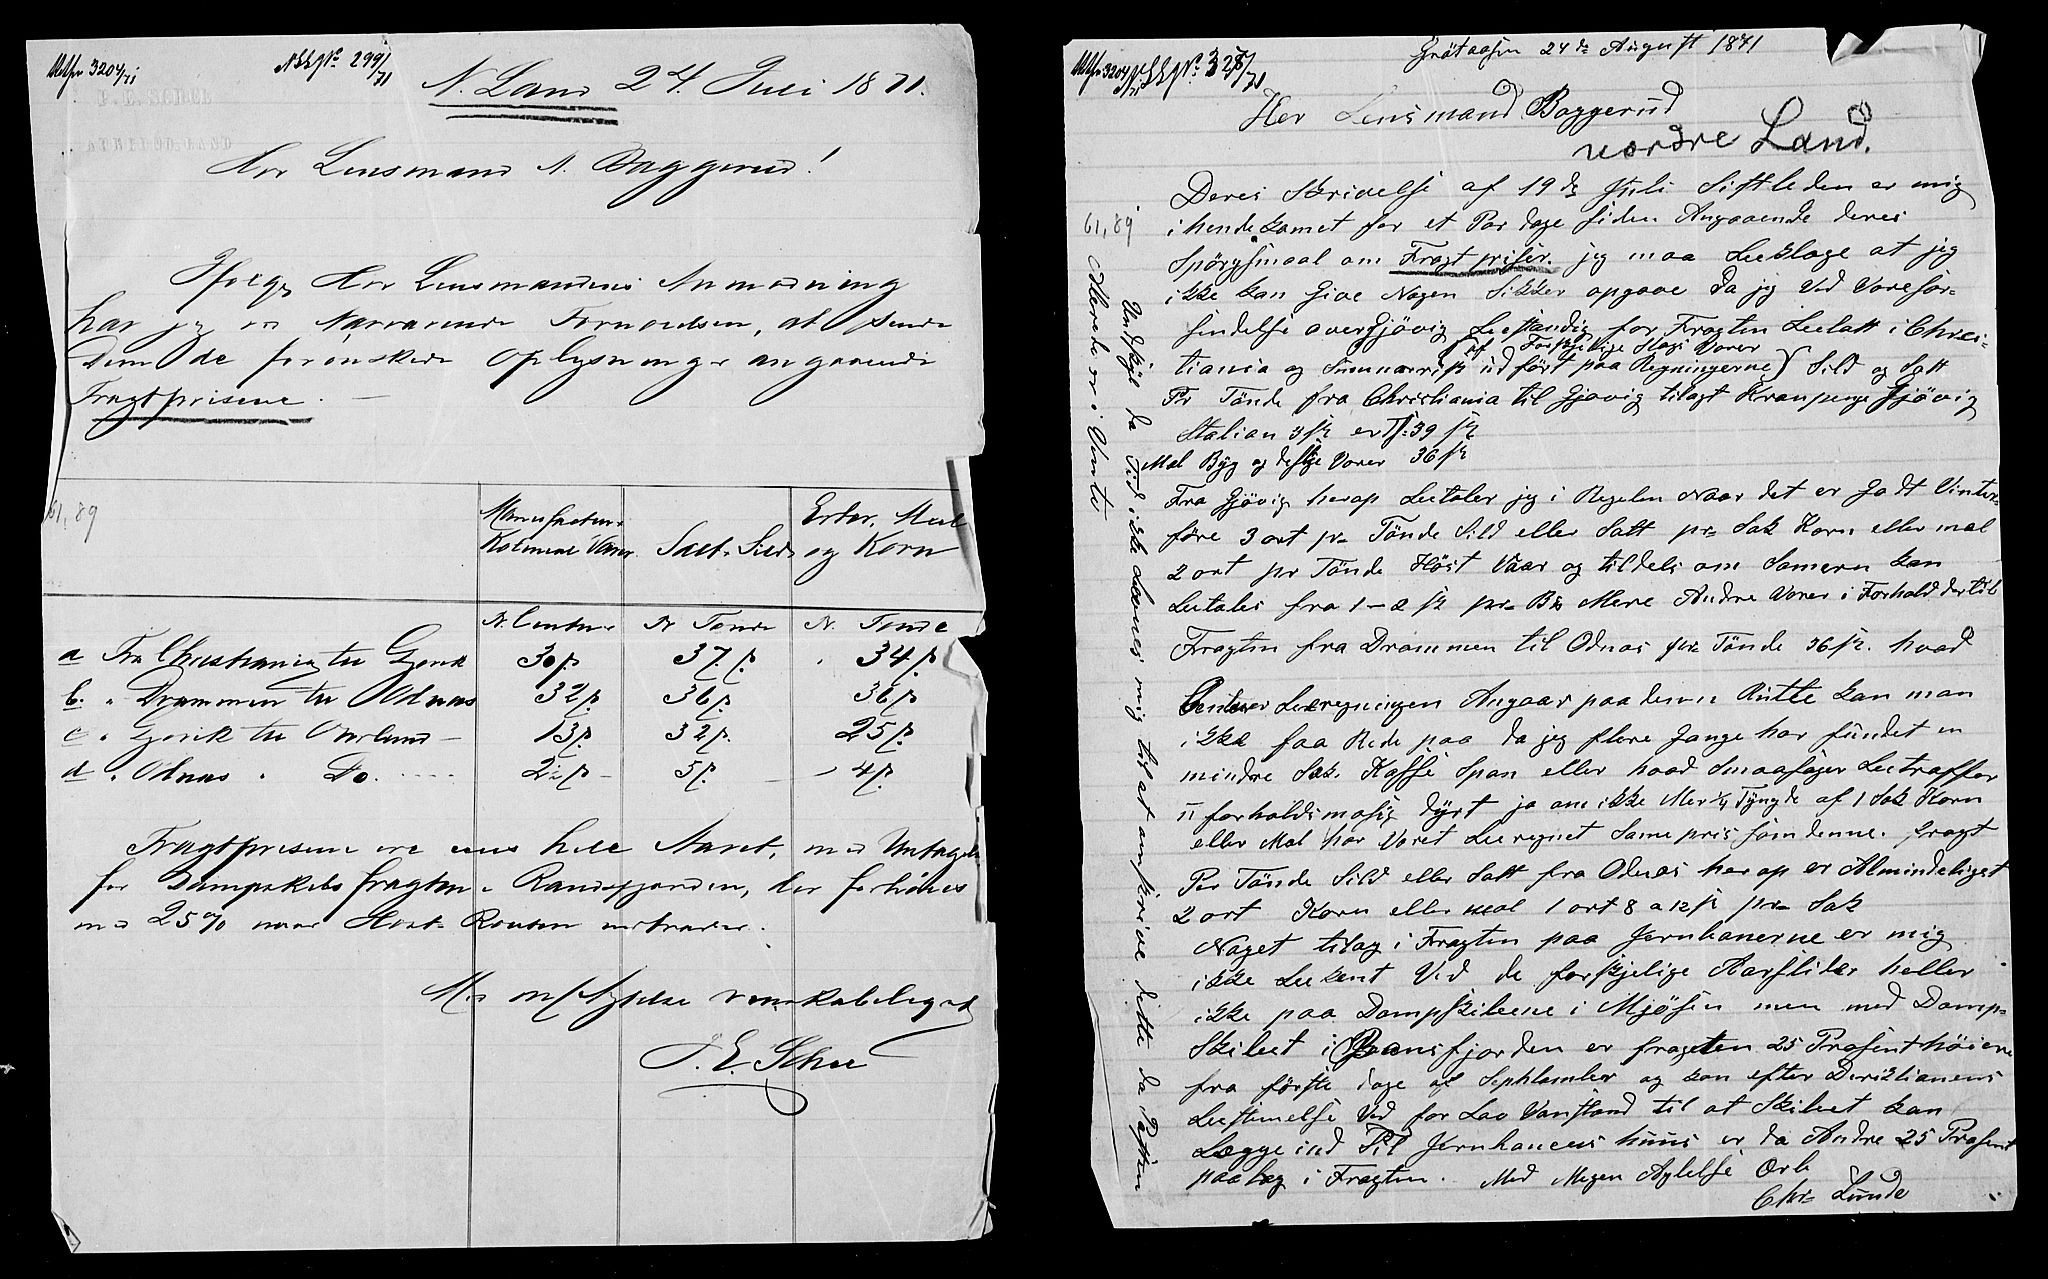 N. Land 24. Juli 1871.
Hr. Lensmand N. Baggerud!
Ifølge Hr Lensmandens Anmodning
har jeg Nærværende Fornøielsen, at sende
Dem de forønskede Oplysninger angaaende
Fragtpriserne. —
61,89
Manufactur Salt. Sild Erter, Meel
Kolonial Varer og Korn
Tønde Tønde
a Fra Christiania til Gjøvik 30 37 34
b. " Drammen til Odnæs 32 36 36
c " Gjøvik til 13 32 25
d " Odnæs " Do. 5 4
Fragtpriserne ere ens hele Aaret, med Undtagelse
for Dampskibsfragten i Randsfjorden, der forhøies
med 25% naar Høst Routen indtræder.
Med Agtelse venskabeligst
Grötaasen 24 de August 1871
Her Lensmand Baggerud
nordre Land.
61,89
Deres Skrivelse af 19 de Juli Sistleden er mig
ihendekomet for et Par dage siden Angaaende deres
Spörgsmaal om Fragtpriser. jeg maa beklage at jeg
ikke kan Give Nogen Sikker opgave Da jeg Ved Vorefor-
sindelse over Gjövig bestandig for Fragten belatt i Chris-
(af Forskjelige Slags Varer
tiania og Summarisk udfört paa Regningerne) Sild og Salt
Pr Tönde fra Christiania til Gjøvig tilagt Kranpenge Gjövig
Stasjon 3 sk er 39 sk
Mel Byg og deslige Varer 36 sk
Fra Gjövig herop betaler jeg i Regelen Naar det er Godt Vinter-
före 3 ort pr Tönde Sild eller Salt pr Sæk Korn eller mel
2 ort pr Tönde Höst Vaar og tildels om Someren kan
betales fra 1 – 2 sk pr Mere Andre Varer i Forhold dertil
Fragten fra Drammen til Odnæs pr Tönde 36 sk. hvad
beregningen Angaar paa denne Rutte kan man
ikke faa Rede paa da jeg flere Gange har fundet en
mindre Sæk Kaffe Span eller hvad Smaasager betræffer
uforholdsmæsig dyrt ja om ikke Mer 1/4 Tyngde af 1 Sæk Korn
eller Mel har Været beregnet Same pris som denne. fragt
Per Tönde Sild eller Salt fra Odnæs herop er Almindeligst
2 ort Korn eller mel 1 ort 8 a 12 sk pr Sæk
Noget tilæg i Fragten paa Jernbanerne er mig
ikke bekent Ved de forskjelige Aarstider heller
ikke paa Dampskibene i Mjøsen men med Damp-
Skibet i Ransfjorden er fragten 25 Prosent höiere
fra förste dage af Septhember og kan efter Deriktianens
bestimelse Ved for Lav Vanstand til at Skibet kan
Lægge ind Til Jernbanens huus er da Andre 25 Prosent
paalæg i Fragten. Med Megen Agtelse Erb
Chr. Lunde
Undskyl da Tid ikke Levnes mig til at omskrive dette da Posten
Allerede er i Vente